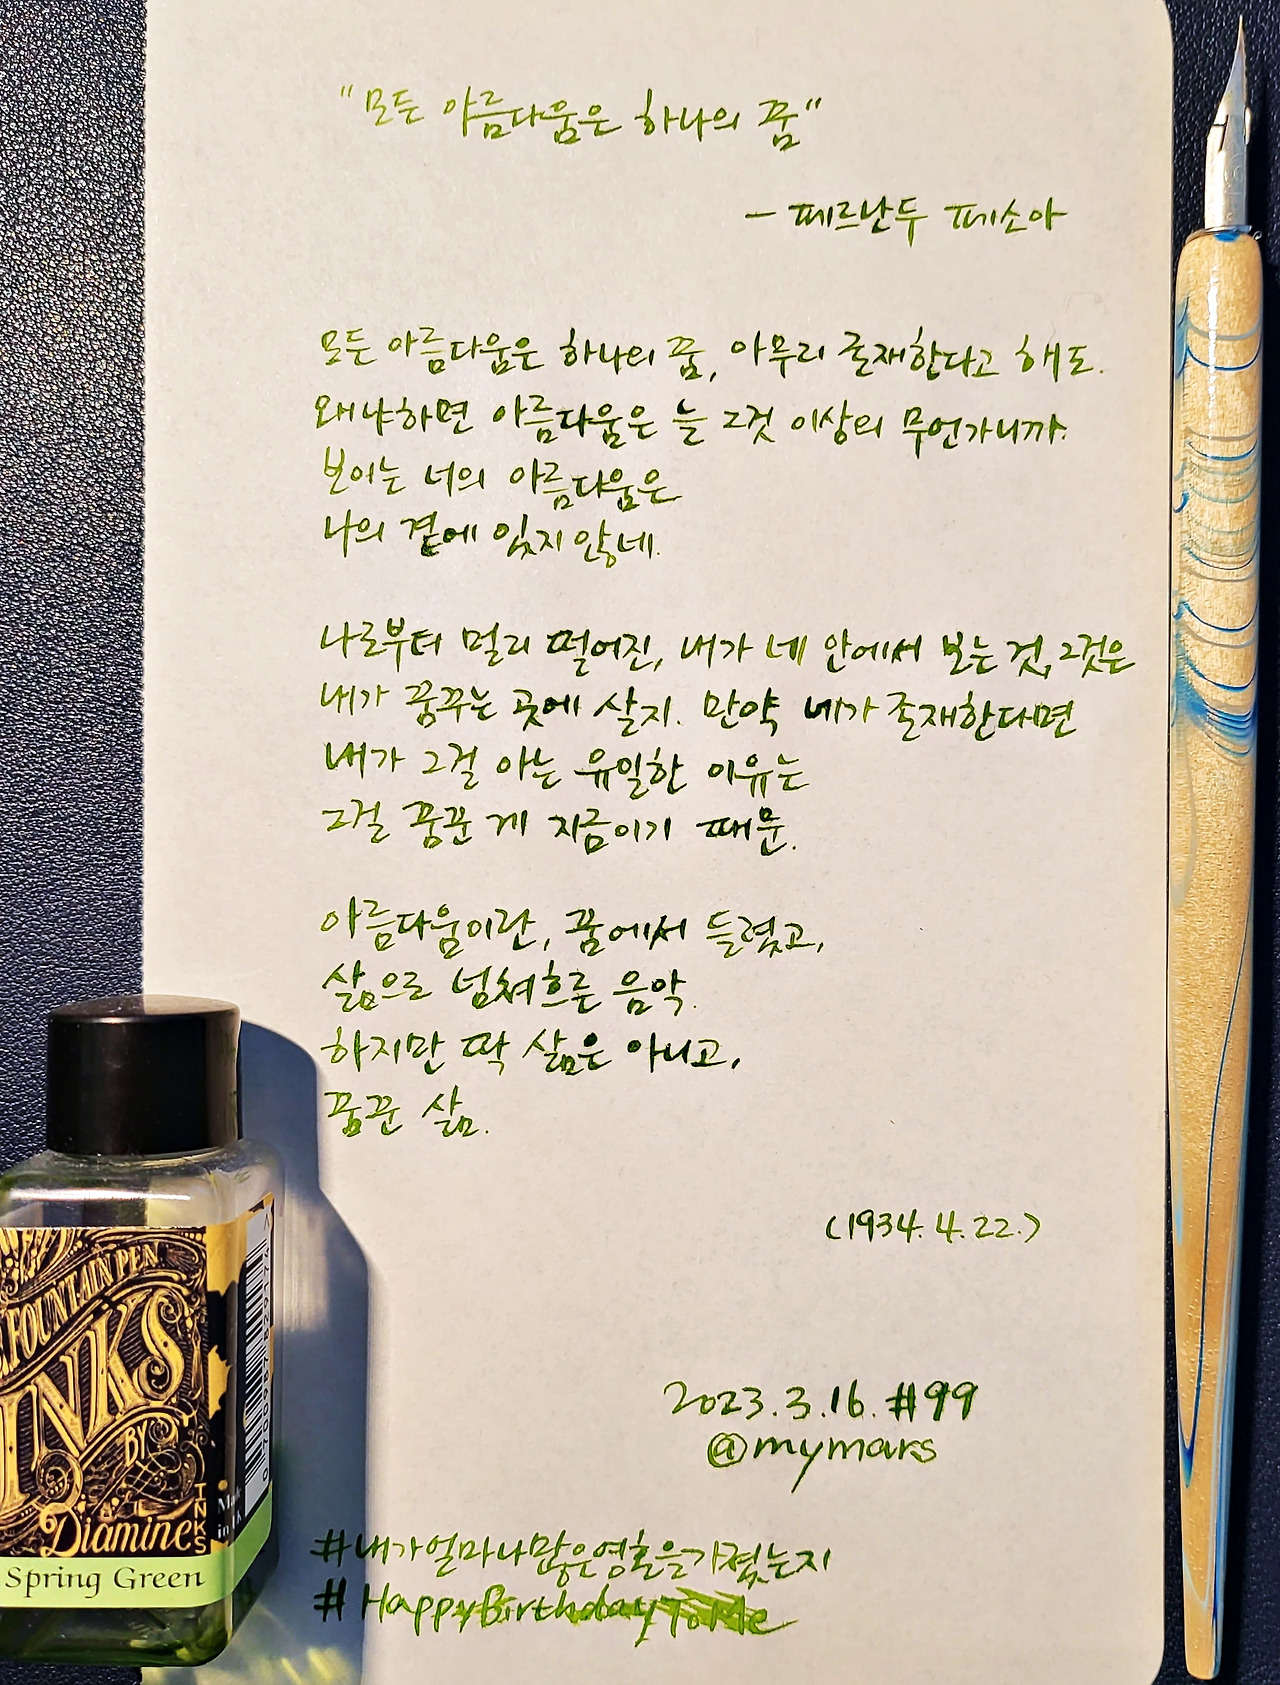 "모든 아름다움은 하나의 꿈"
- 페르난두 페소아
모든 아름다움은 하나의 꿈, 아무리 존재한다고 해도.
왜냐하면 아름다움은 늘 그것 이상의 무언가니까.
보이는 너의 아름다움은
나의 곁에 있지 않네.
나로부터 멀리 떨어진, 내가 네 안에서 보는 것, 그것은
내가 꿈꾸는 곳에 살지. 만약 네가 존재한다면
내가 그걸 아는 유일한 이유는
그걸 꿈꾼 게 지금이기 때문.
아름다움이란, 꿈에서 들렸고,
삶으로 넘쳐흐른 음악.
하지만 딱 삶은 아니고,
꿈꾼 삶.
(1934.4.22.)
2023.3.16. #99
@mymars
#내가얼마나많은영혼을가졌는지
#HappyBirthdayToMe
FOUNTAIN PEN
INKS
BY
Diamine
INKS
Made
in UK
Spring Green